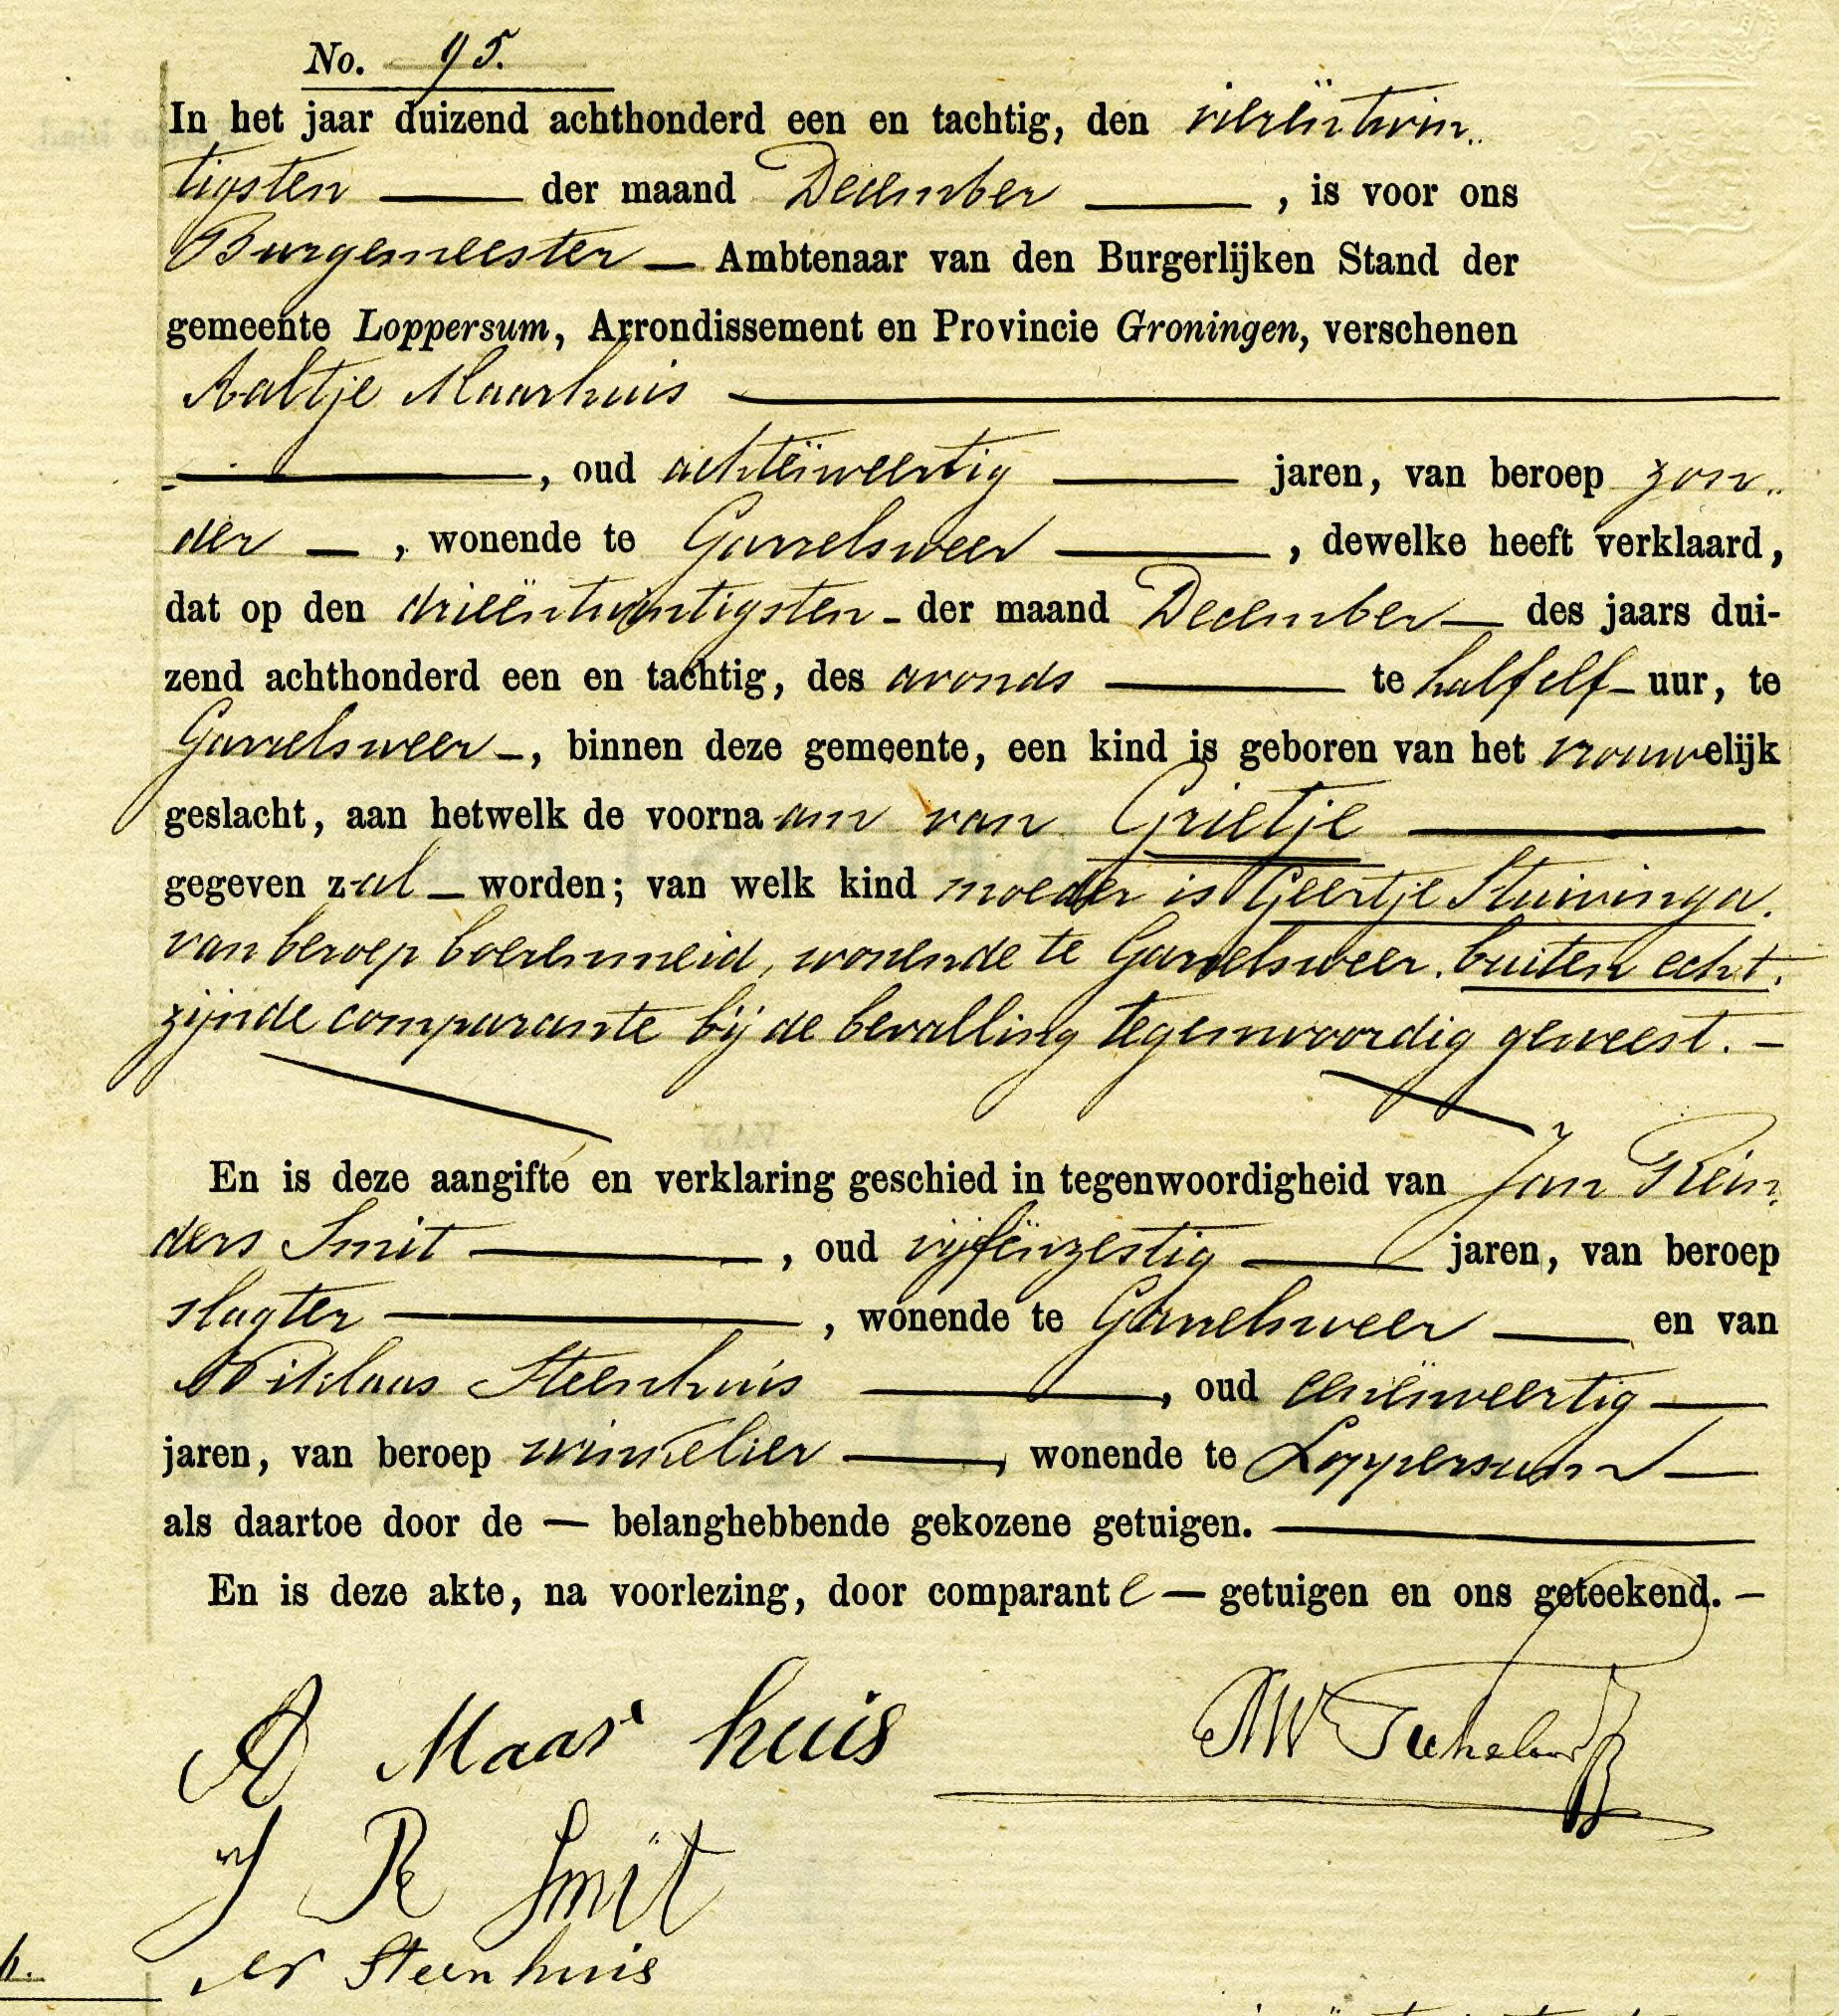 No. 95.
In het jaar duizend achthonderd een en tachtig, den vierëntwin..
tigsten der maand December , is voor ons
Burgemeester Ambtenaar van den Burgerlijken Stand der
gemeente Loppersum, Arrondissement en Provincie Groningen, verschenen
Aaltje Maarhuis
, oud achtënveertig jaren, van beroep zon..
der , wonende te Garrelsweer , dewelke heeft verklaard,
dat op den drieëntwintigsten der maand December des jaars dui-
zend achthonderd een en tachtig, des avonds te half elf uur, te
Garrelsweer , binnen deze gemeente, een kind is geboren van het vrouwelijk
geslacht, aan hetwelk de voornaam van Grietje
gegeven zal worden; van welk kind moeder is Geertje Stuivinga.
van beroep boerenmeid, wonende te Garrelsweer. buiten echt.
zijnde comparante bij de bevalling tegenwoordig geweest. —
En is deze aangifte en verklaring geschied in tegenwoordigheid van Jan Rein,
ders Smit , oud vijfënzestig jaren, van beroep
slagter , wonende te Garrelsweer en van
Niklaas Steenhuis , oud eenënveertig
jaren, van beroep winkelier , wonende te Loppersum
als daartoe door de — belanghebbende gekozene getuigen.
En is deze akte, na voorlezing, door comparante — getuigen en ons geteekend. —
A Maarhuis
J R Smit
N Steenhuis